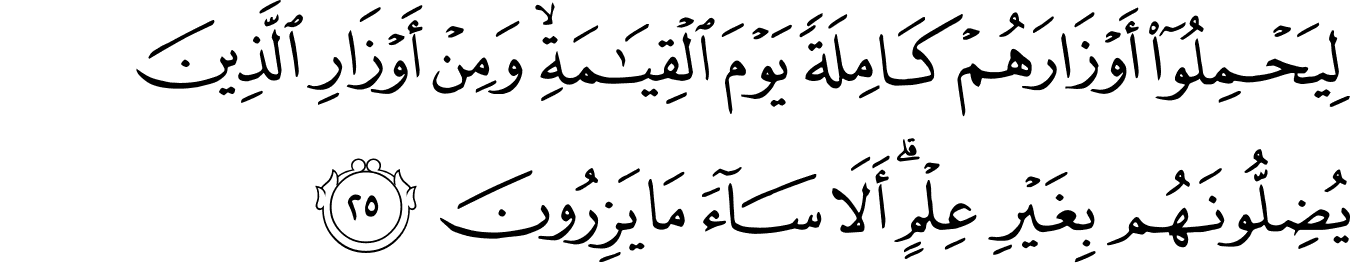 لِيَحْمِلُوٓا۟ أَوْزَارَهُمْ كَامِلَةً يَوْمَ ٱلْقِيَـٰمَةِ ۙ وَمِنْ أَوْزَارِ ٱلَّذِينَ
يُضِلُّونَهُم بِغَيْرِ عِلْمٍ ۗ أَلَا سَآءَ مَا يَزِرُونَ ٢٥